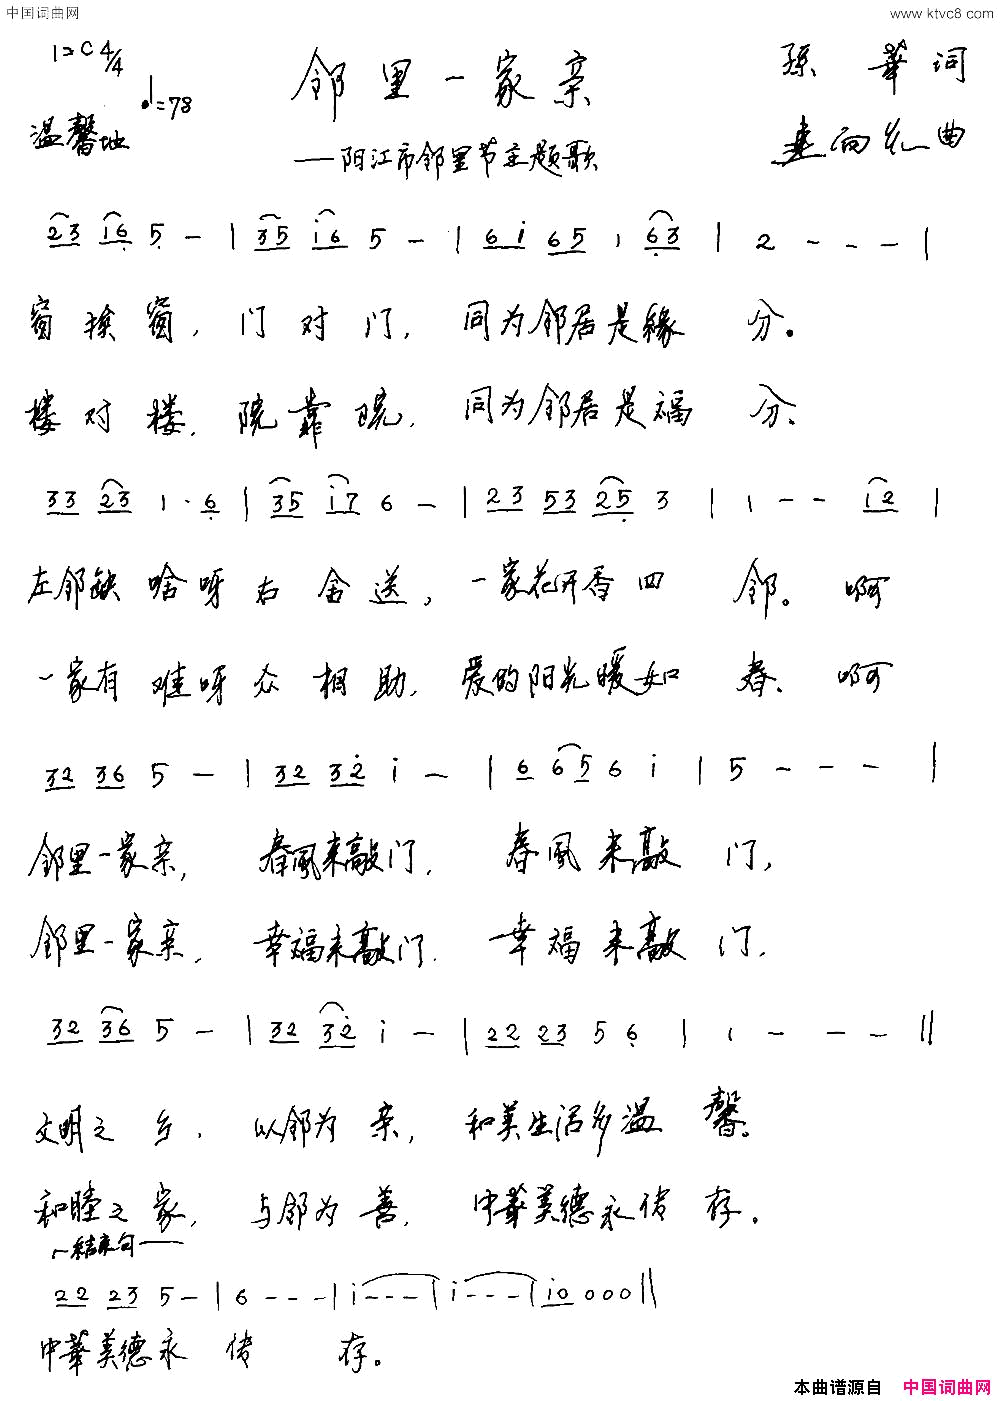 中国词曲网
www.ktvc8.com
1=C 4/4
♩=78
温馨地
邻里一家亲
——阳江市邻里节主题歌
孙華词
向礼曲
23 i6 5 - | 35 i6 5 - | 6i 65 1 63 | 2 - - - |
窗挨窗，门对门，同为邻居是緣分。
楼对楼，院靠院，同为邻居是福分。
33 23 1· 6 | 35 i7 6 - | 23 53 25 3 | 1 - - i2 |
左邻缺啥呀右舍送，一家花开香四邻。啊
一家有难呀众相助，爱的阳光暖如春。啊
32 36 5 - | 32 32 i - | 6 65 6 i | 5 - - - |
邻里一家亲，春風来敲门，春風来敲门，
邻里一家亲，幸福来敲门，幸福来敲门，
32 36 5 - | 32 32 i - | 22 23 5 6 | 1 - - - ||
文明之乡，以邻为亲，和美生活多温馨。
和睦之家，与邻为善，中華美德永传存。
结束句
22 23 5 - | 6 - - - | i - - - | i - - - | i0 0 0 0 ||
中華美德永传存。
本曲谱源自 中国词曲网